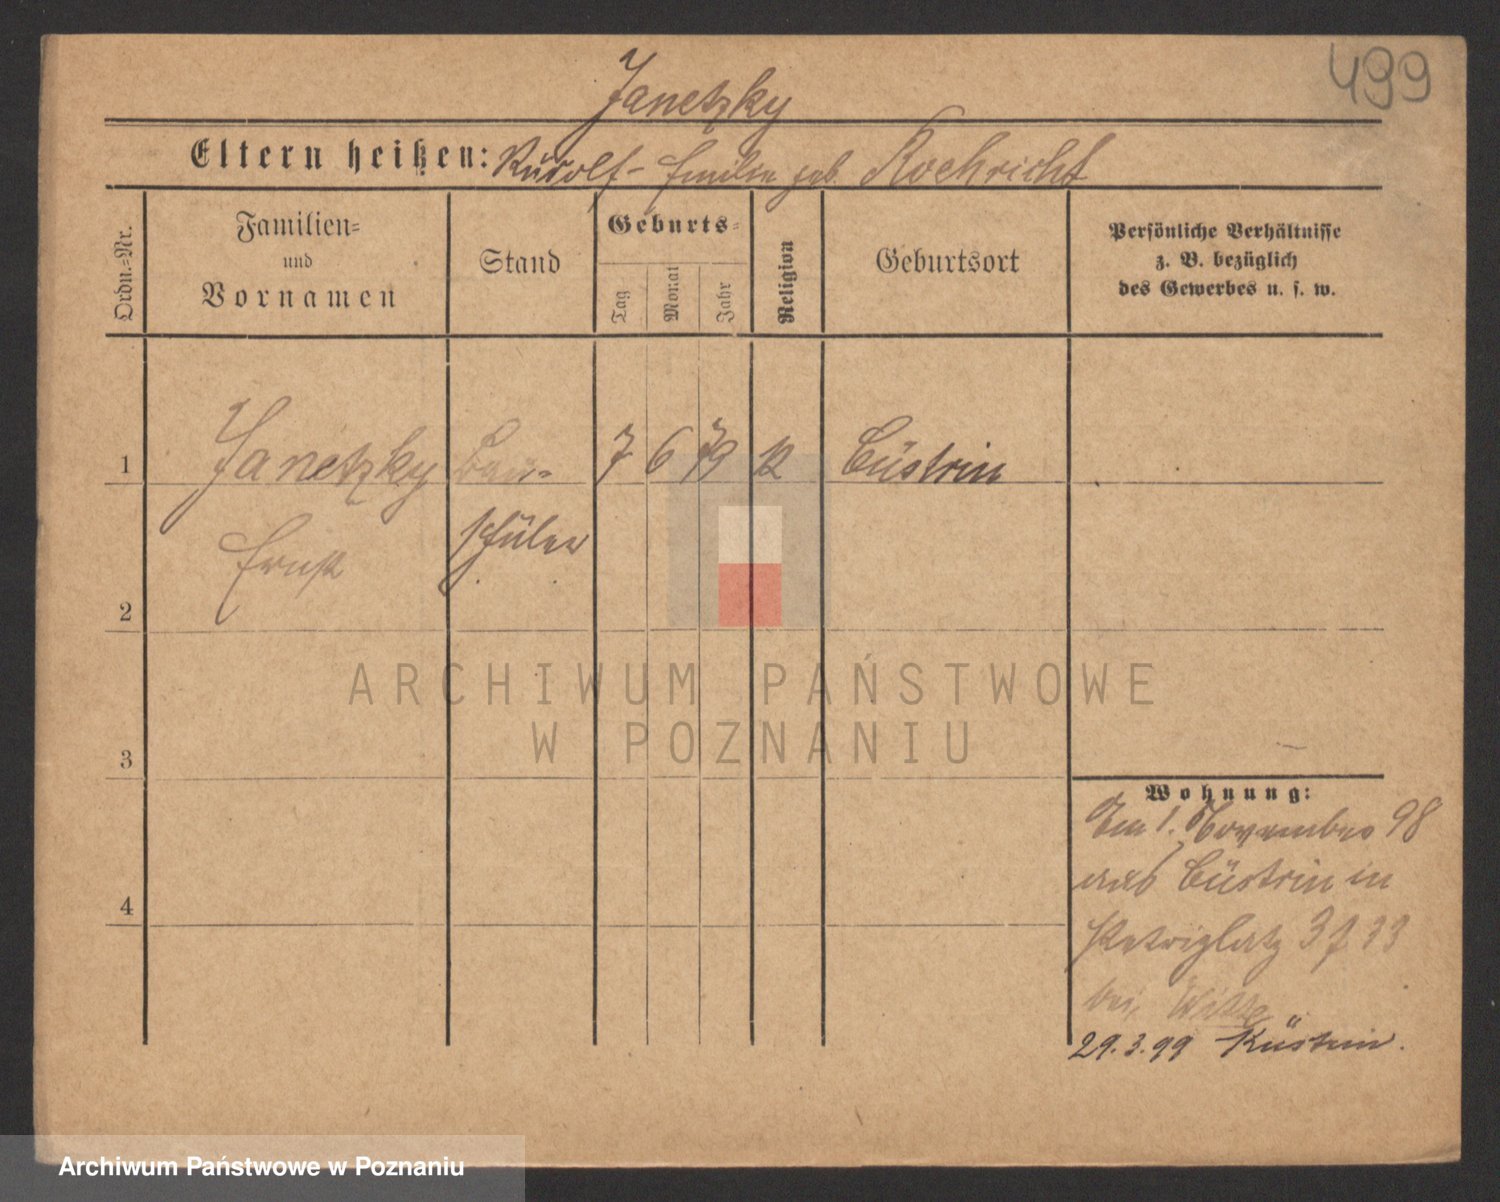 499
Janetzky
Eltern heißen: Rudolf - Emilie geb. Roehricht
Ordn.-Nr.
Familien-
und
Vornamen
Stand
Geburts-
Tag
Monat
Jahr
Religion
Geburtsort
Persönliche Verhältnisse
z. B. bezüglich
des Gewerbes u. s. w.
1 Janetzky Bau- 7 6 79 Cüstrin
Ernst schüler
2
ARCHIWUM PAŃSTWOWE
W POZNANIU
3
Wohnung:
Am 1. November 98
aus Cüstrin in
Petriplatz 3
bei Witze
4
29.3.99 Küstrin.
Archiwum Państwowe w Poznaniu